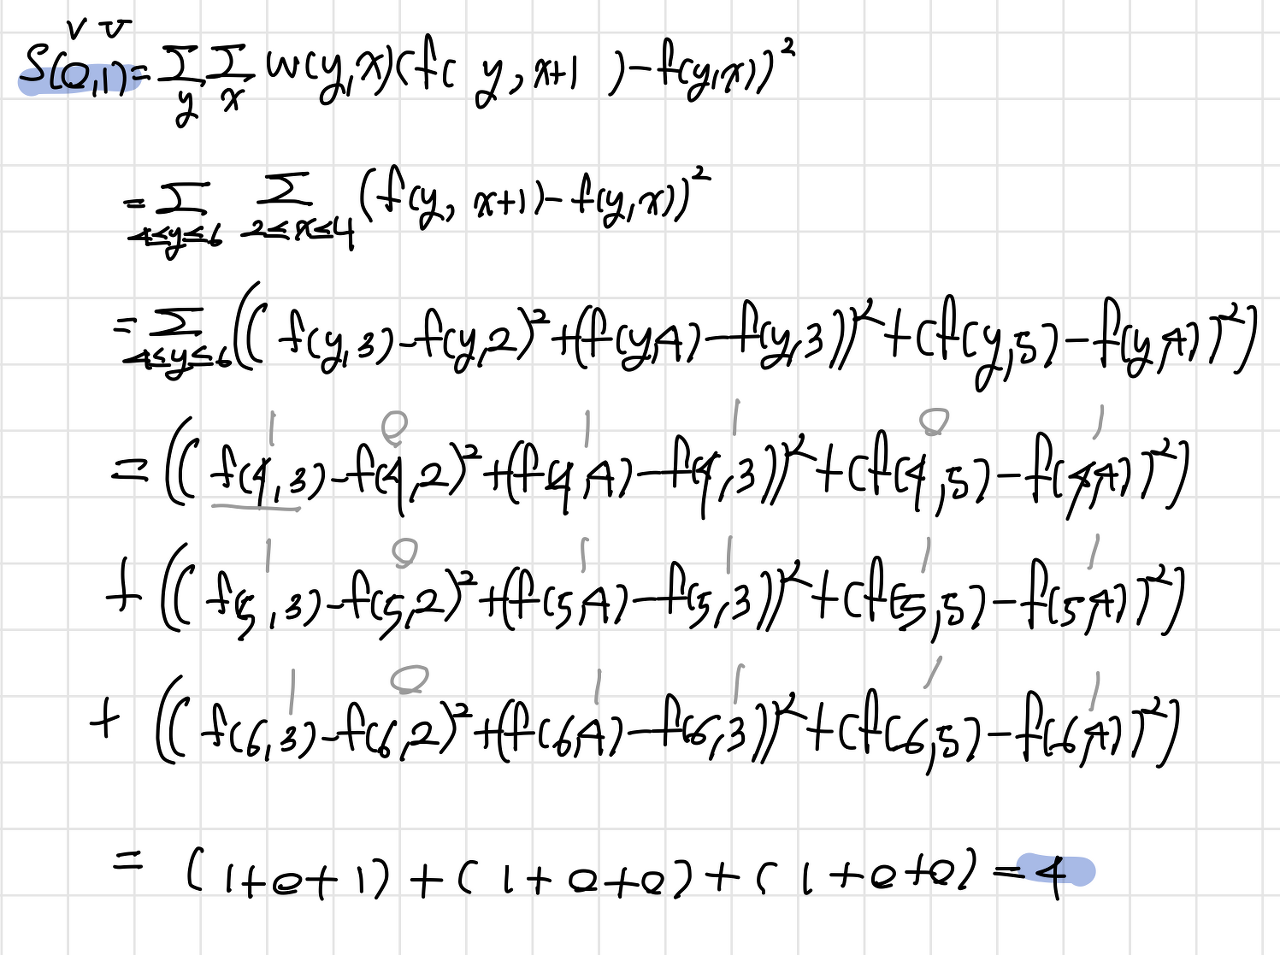 v v
S(0,1) = Σ_y Σ_x w(y,x)(f( y, x+1 ) - f(y,x))²
= Σ_{4≤y≤6} Σ_{2≤x≤4} (f(y, x+1) - f(y,x))²
= Σ_{4≤y≤6} (( f(y,3) - f(y,2)² + (f(y,4) - f(y,3))² + (f(y,5) - f(y,4))²)
1 0 1 1 0 1
= (( f(4,3) - f(4,2)² + (f(4,4) - f(4,3))² + (f(4,5) - f(4,4))²)
1 0 1 1 1 1
+ (( f(5,3) - f(5,2)² + (f(5,4) - f(5,3))² + (f(5,5) - f(5,4))²)
1 0 1 1 1 1
+ (( f(6,3) - f(6,2)² + (f(6,4) - f(6,3))² + (f(6,5) - f(6,4))²)
= (1+0+1) + (1+0+0) + (1+0+0) = 4